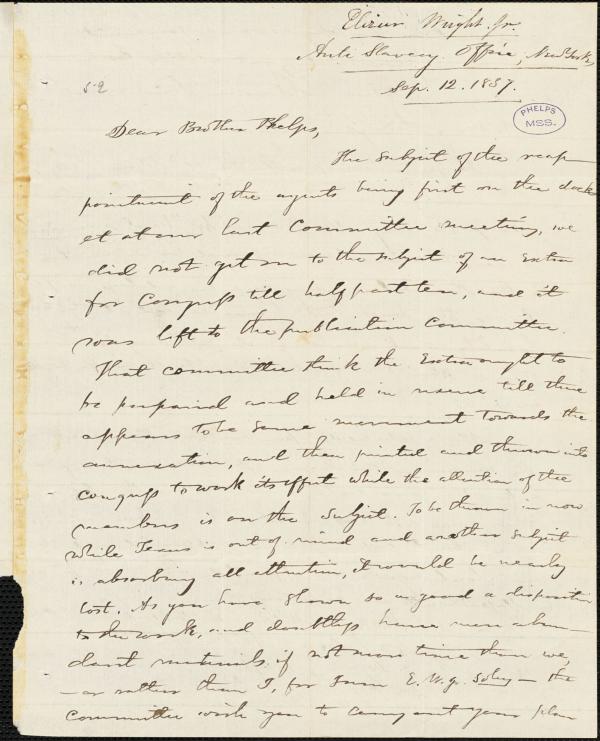 Elizur Wright Jr.
Anti Slavery Office, New York,
Sep. 12. 1837.
52
PHELPS
MSS.
Dear Brother Phelps,
The subject of the reap-
pointment of the agents being first on the dock
et at our last committee meeting, we
did not get on to the subject of an Extra
for Congress till half past ten, and it
was left to the publication committee.
That committee think the Extra ought to
be prepared and held in reserve till there
appears to be some movement towards the
annexation, and then printed and thrown into
congress to work its effect while the attention of the
members is on the subject. To be thrown in now
while Texas is out of mind and another subject
is absorbing all attention, it would be nearly
lost. As you have shown so good a disposition
to the work, and doubtless have more abun-
dant materials, if not more time than we,
— or rather than I, for I am E. W. jr. solus — the
committee wish you to carry out your plan